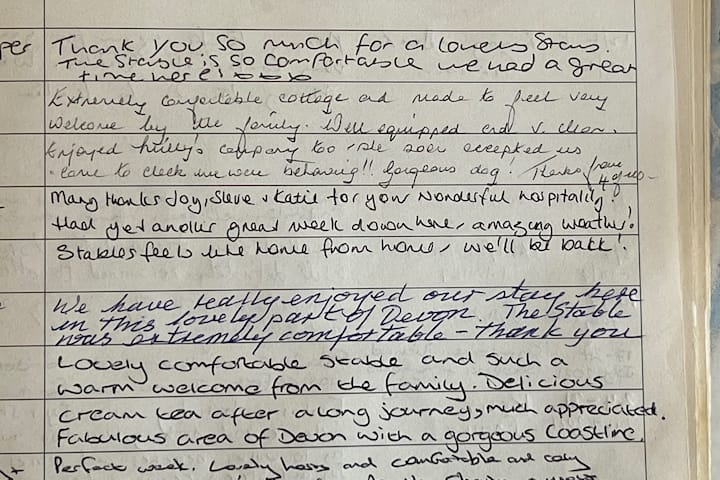 per Thank you so much for a lovely Stay.
The Stable is so comfortable we had a great
time here! xxx
Extremely comfortable cottage and made to feel very
welcome by the family. Well equipped and v. clean.
Enjoyed company too she soon accepted us
came to check we were behaving!! Gorgeous dog! Thanks from
Many thanks Joy, Steve & Katie for your wonderful hospitality!
Had yet another great week down here, amazing weather!
Stables feels like home from home, we'll be back!
We have really enjoyed our stay here
in this lovely part of Devon. The Stable
was extremely comfortable - thank you
Lovely comfortable stable and such a
warm welcome from the family. Delicious
cream tea after a long journey, much appreciated.
Fabulous area of Devon with a gorgeous coastline.
Perfect week. Lovely and comfortable and cosy